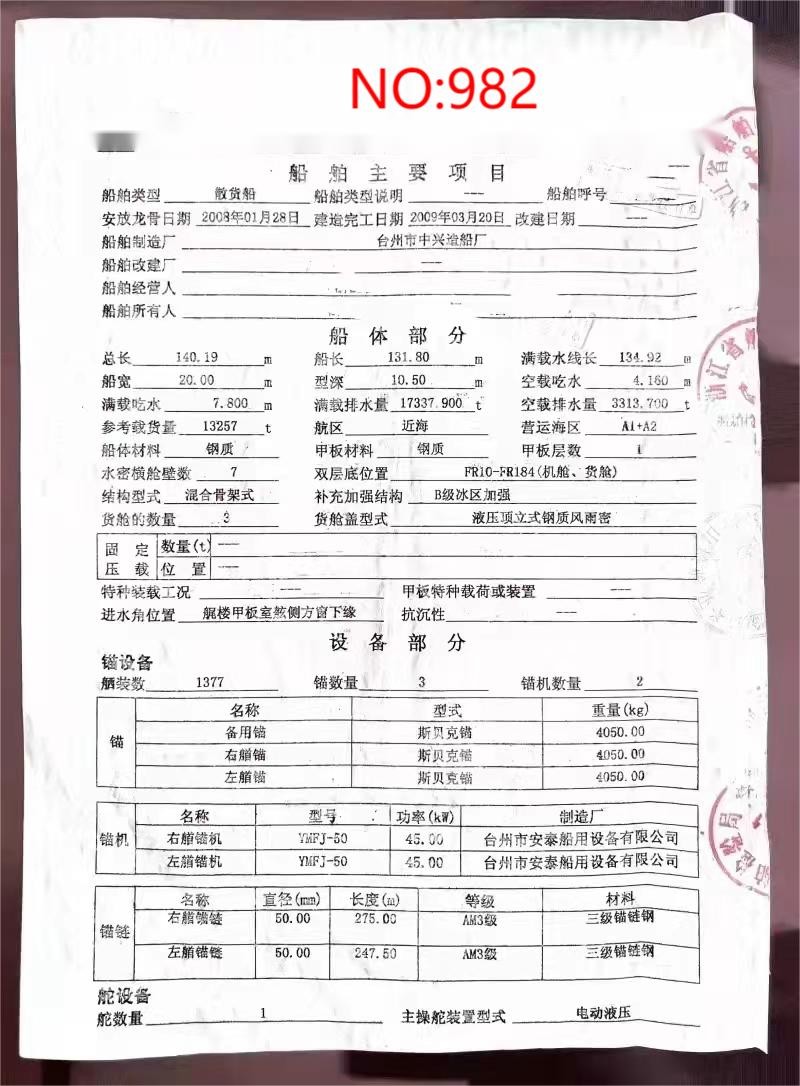 NO:982
船舶主要项目
船舶类型 散货船 船舶类型说明 --- 船舶呼号
安放龙骨日期 2008年01月28日 建造完工日期 2009年03月20日 改建日期 ---
船舶制造厂 台州市中兴造船厂
船舶改建厂 ---
船舶经营人
船舶所有人
船体部分
总长 140.19 m 船长 131.80 m 满载水线长 134.92 m
船宽 20.00 m 型深 10.50 m 空载吃水 4.160 m
满载吃水 7.800 m 满载排水量 17337.900 t 空载排水量 3313.700 t
参考载货量 13257 t 航区 近海 营运海区 A1+A2
船体材料 钢质 甲板材料 钢质 甲板层数 1
水密横舱壁数 7 双层底位置 FR10-FR184(机舱、货舱)
结构型式 混合骨架式 补充加强结构 B级冰区加强
货舱的数量 3 货舱盖型式 液压顶立式钢质风雨密
固定 数量(t) ---
压载 位置 ---
特种装载工况 --- 甲板特种载荷或装置 ---
进水角位置 艉楼甲板室侧方窗下缘 抗沉性 ---
设备部分
锚设备
舾装数 1377 锚数量 3 锚机数量 2
锚 名称 型式 重量(kg)
备用锚 斯贝克锚 4050.00
右艏锚 斯贝克锚 4050.00
左艏锚 斯贝克锚 4050.00
锚机 名称 型号 功率(kW) 制造厂
右艏锚机 YMFJ-50 45.00 台州市安泰船用设备有限公司
左艏锚机 YMFJ-50 45.00 台州市安泰船用设备有限公司
锚链 名称 直径(mm) 长度(m) 等级 材料
右艏锚链 50.00 275.00 AM3级 三级锚链钢
左艏锚链 50.00 247.50 AM3级 三级锚链钢
舵设备
舵数量 1 主操舵装置型式 电动液压